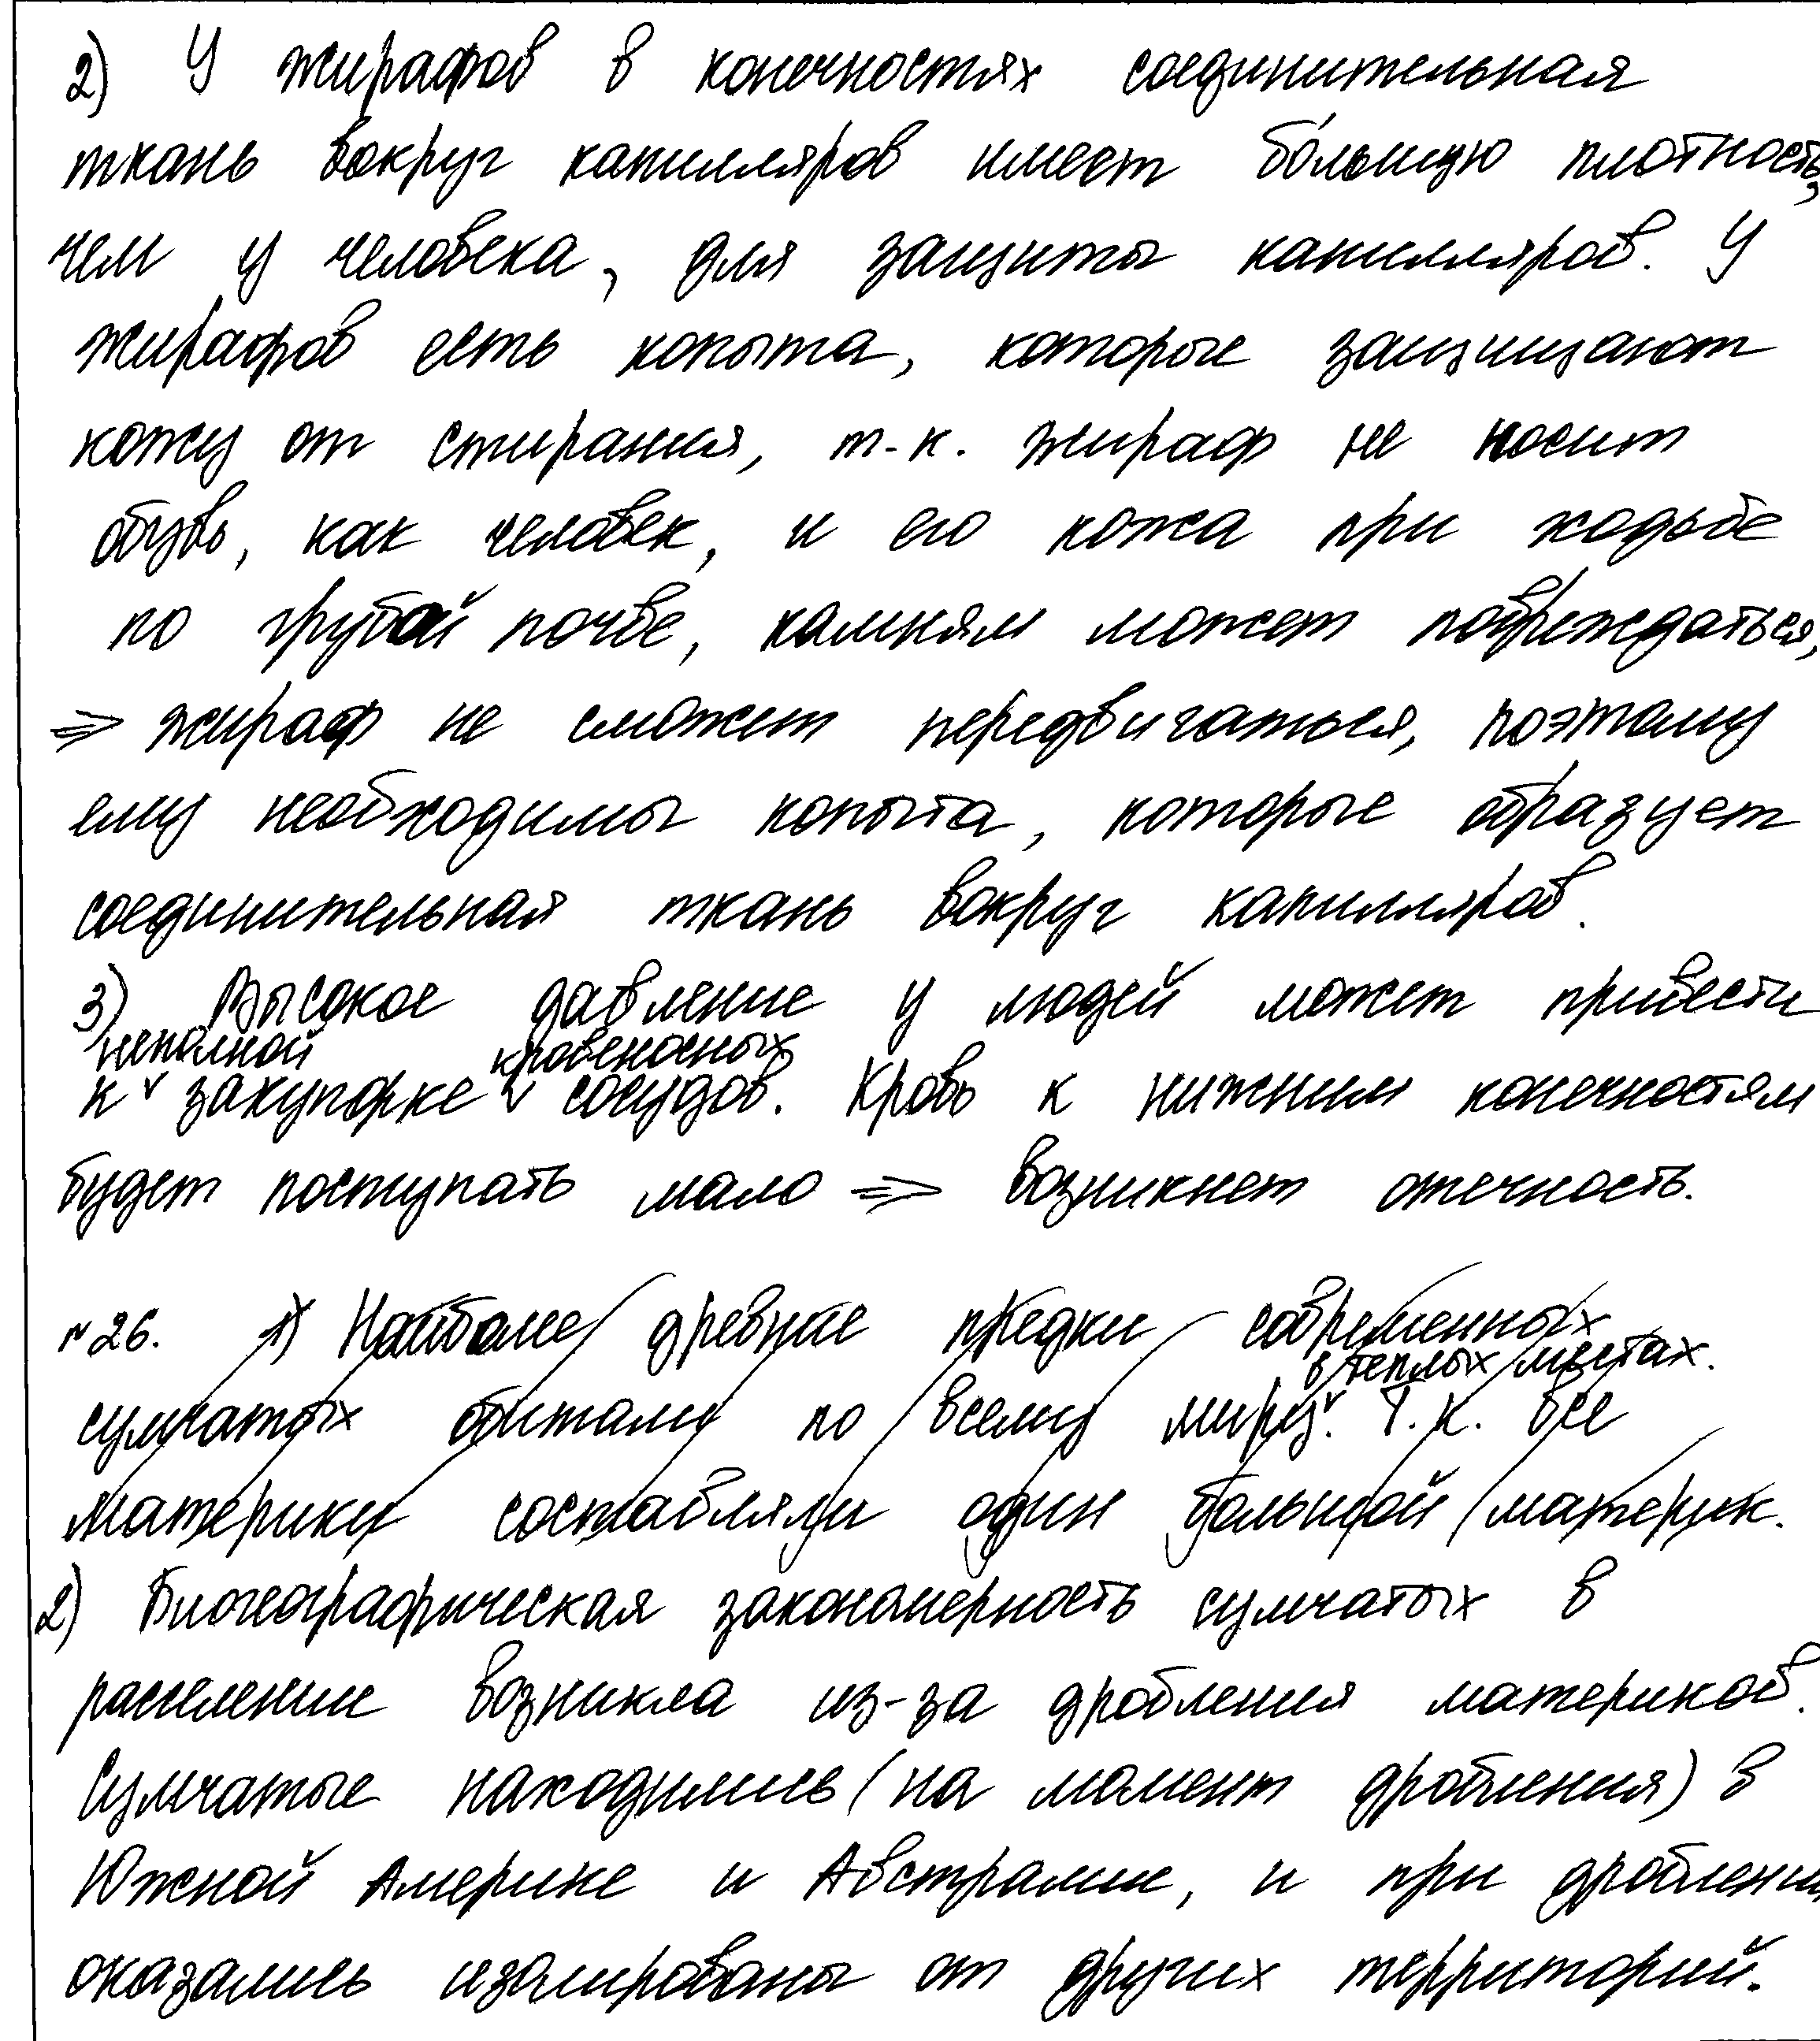 2) У жирафов в конечностях соединительная
ткань вокруг капилляров имеет бо́льшую плотность,
чем у человека, для защиты капилляров. У
жирафов есть копыта, которые защищают
кожу от стирания, т.к. жираф не носит
обувь, как человек, и его кожа при ходьбе
по грубой почве, камням может повреждаться,
=> жираф не сможет передвигаться, поэтому
ему необходимы копыта, которые образует
соединительная ткань вокруг капилляров.
3) Высокое давление у людей может привести
неполной кровеносных
к закупорке сосудов. Кровь к нижним конечностям
будет поступать мало => возникнет отечность.
№26. 1) Наиболее древние предки современных
в теплых местах.
сумчатых обитали по всему миру. Т.к. все
материки составляли один большой материк.
2) Биогеографическая закономерность сумчатых в
расселении возникла из-за дробления материков.
Сумчатые находились (на момент дробления) в
Южной Америке и Австралии, и при дроблении
оказались изолированы от других территорий.